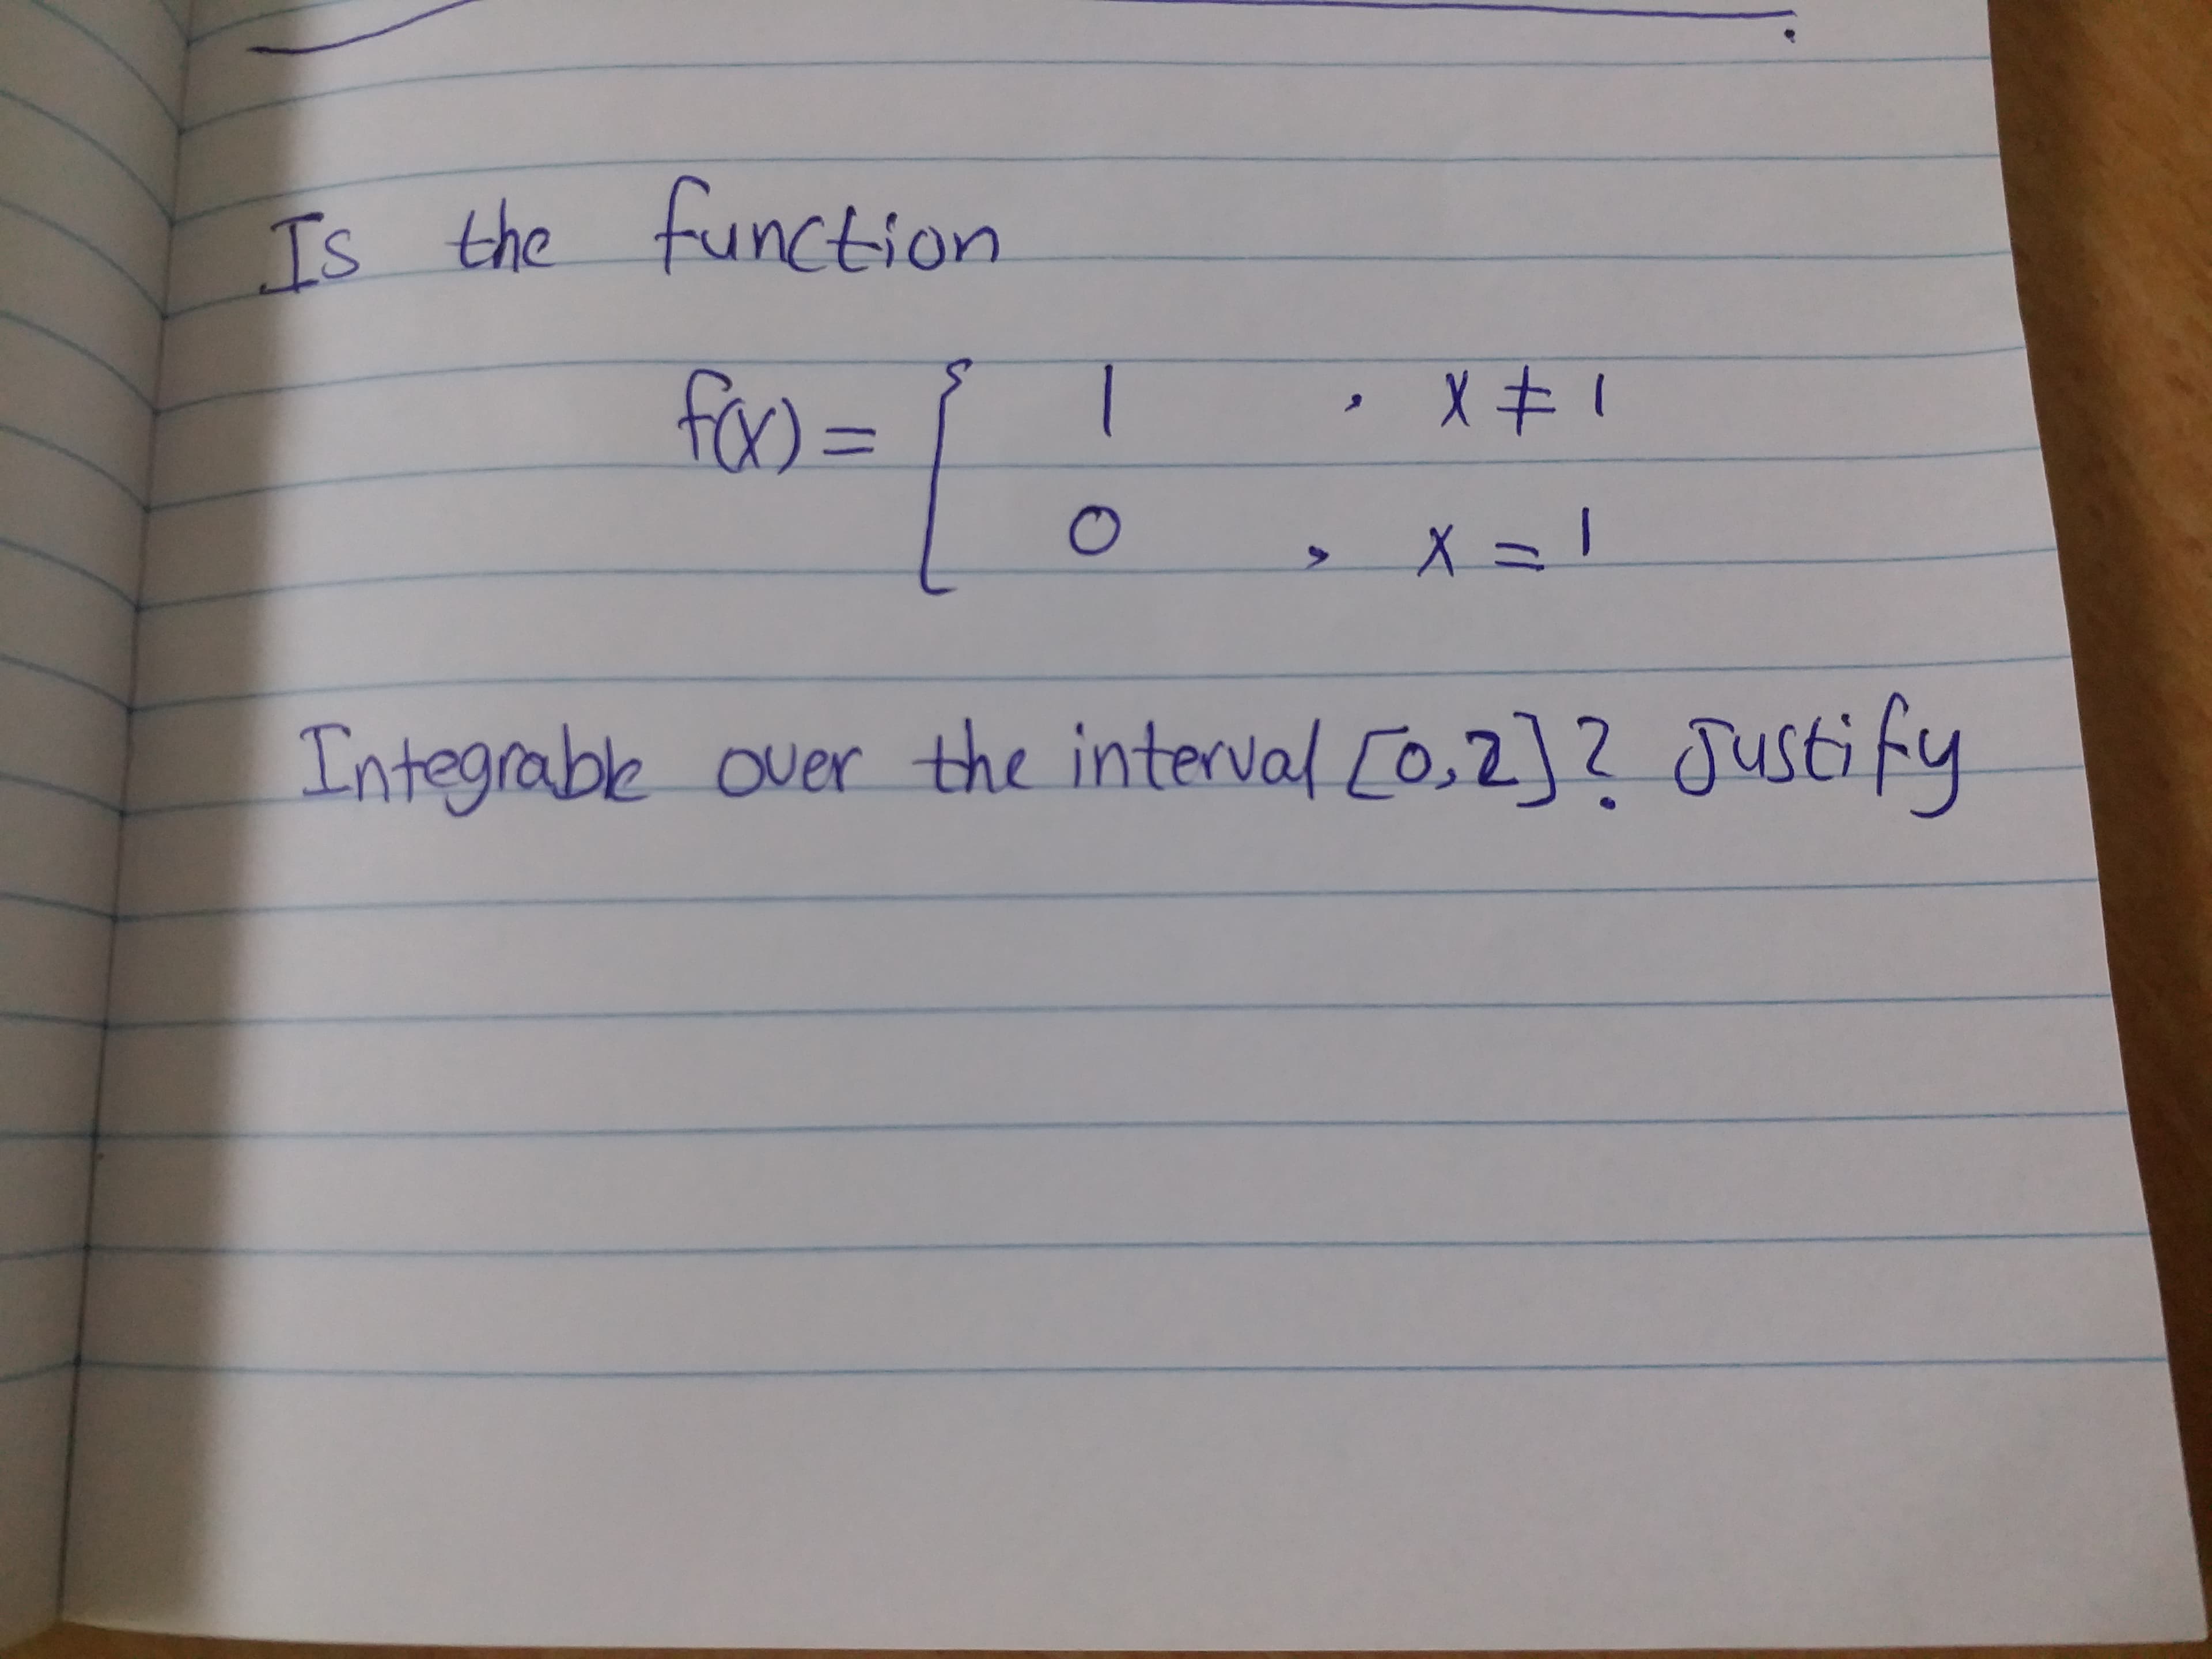 Is the function
f(x) = { 1 , x ≠ 1
0 , x = 1
Integrable over the interval [0,2]? Justify